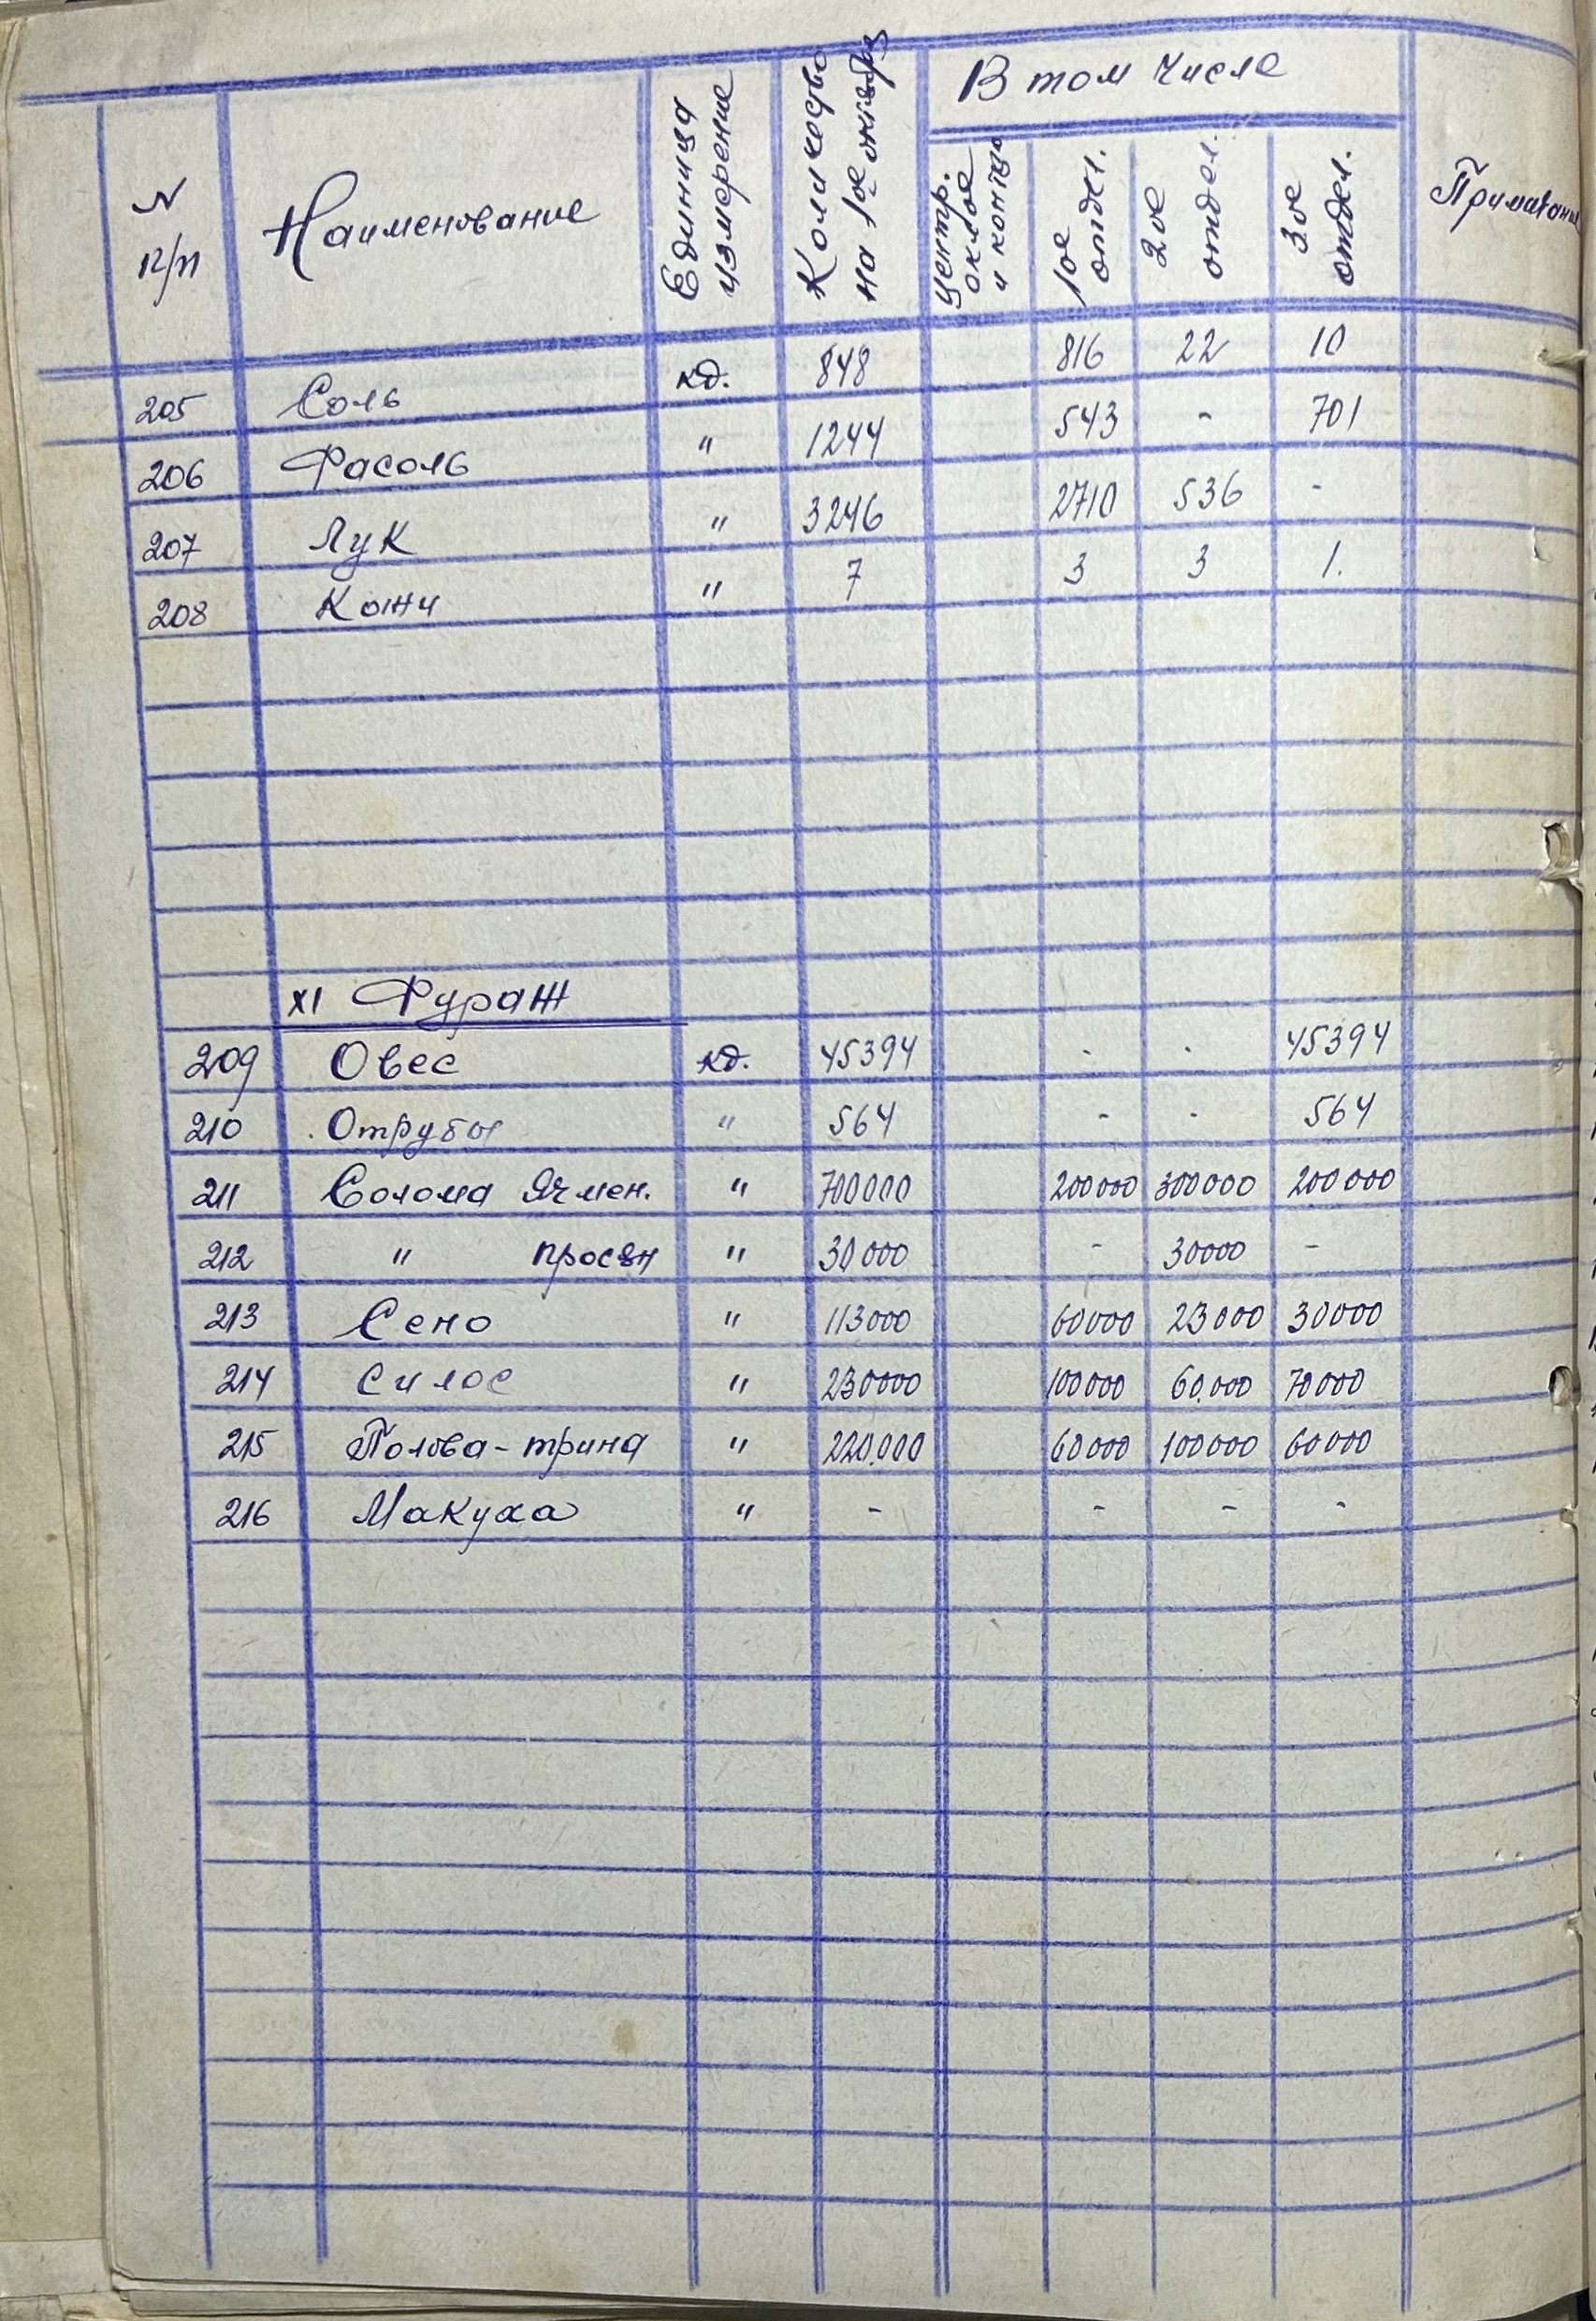 В том числе
N п/п Наименование Единица измерение Количество на 1ое октября центр. 1ое отдел. 2ое отдел. 3ое отдел. Примечание
205 Соль кд. 848 816 22 10
206 Фасоль " 1244 543 - 701
207 Лук " 3246 2710 536 -
208 Кожи " 7 3 3 1.
XI Фураж
209 Овес кд. 45394 - - 45394
210 Отрубы " 564 - - 564
211 Солома Ячмен. " 700000 200000 300000 200000
212 " просян " 30000 - 30000 -
213 Сено " 113000 60000 23000 30000
214 Силос " 230000 100000 60.000 70000
215 Полова-трина " 220.000 60000 100000 60000
216 Макуха " - - - -